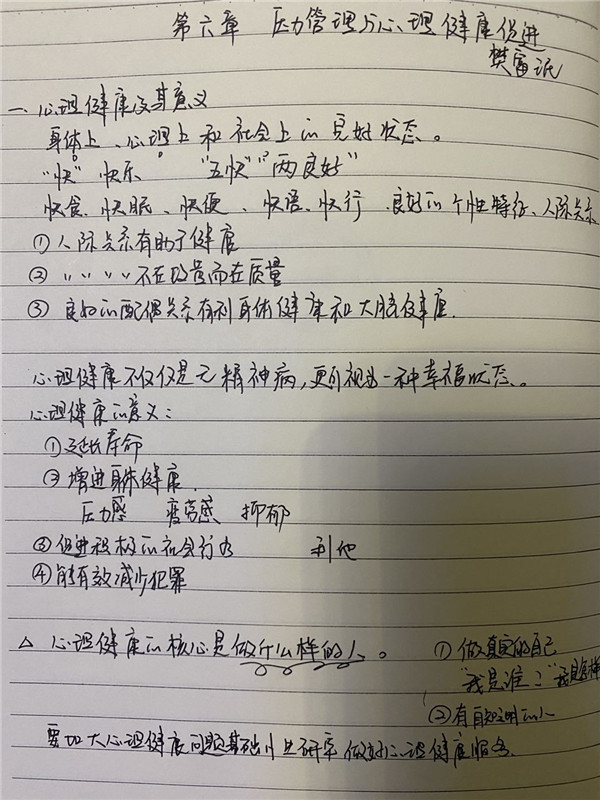 第六章 压力管理与心理健康促进
樊富珉
一、心理健康及其意义
身体上、心理上和社会上的完好状态。
"快" 快乐 "五快""两良好"
快食、快眠、快便、快语、快行 良好的个性特征、人际关系
① 人际关系有助于健康
② 〃 〃 〃 〃 不在数量而在质量
③ 良好的配偶关系有利身体健康和大脑健康.
心理健康不仅仅是无精神病,更可视为一种幸福状态。
心理健康的意义:
①延长寿命
②增进身体健康.
压力感 疲劳感 抑郁
③促进积极的社会行为 利他
④能有效减少犯罪
△ 心理健康的核心是做什么样的人。
① 做真实的自己
"我是谁?" "我是怎样
②有自知之明的人
要加大心理健康问题基础性研究 做好心理健康服务.